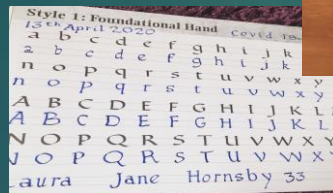 Style 1: Foundational Hand
13th April 2020 Covid 19
a b c d e f g h i j k
a b c d e f g h i j k
n o p q r s t u v w x y
n o p q r s t u v w x y
A B C D E F G H I J K L
A B C D E F G H I J K L
N O P Q R S T U V W X Y
N O P Q R S T U V W X
Laura Jane Hornsby 33